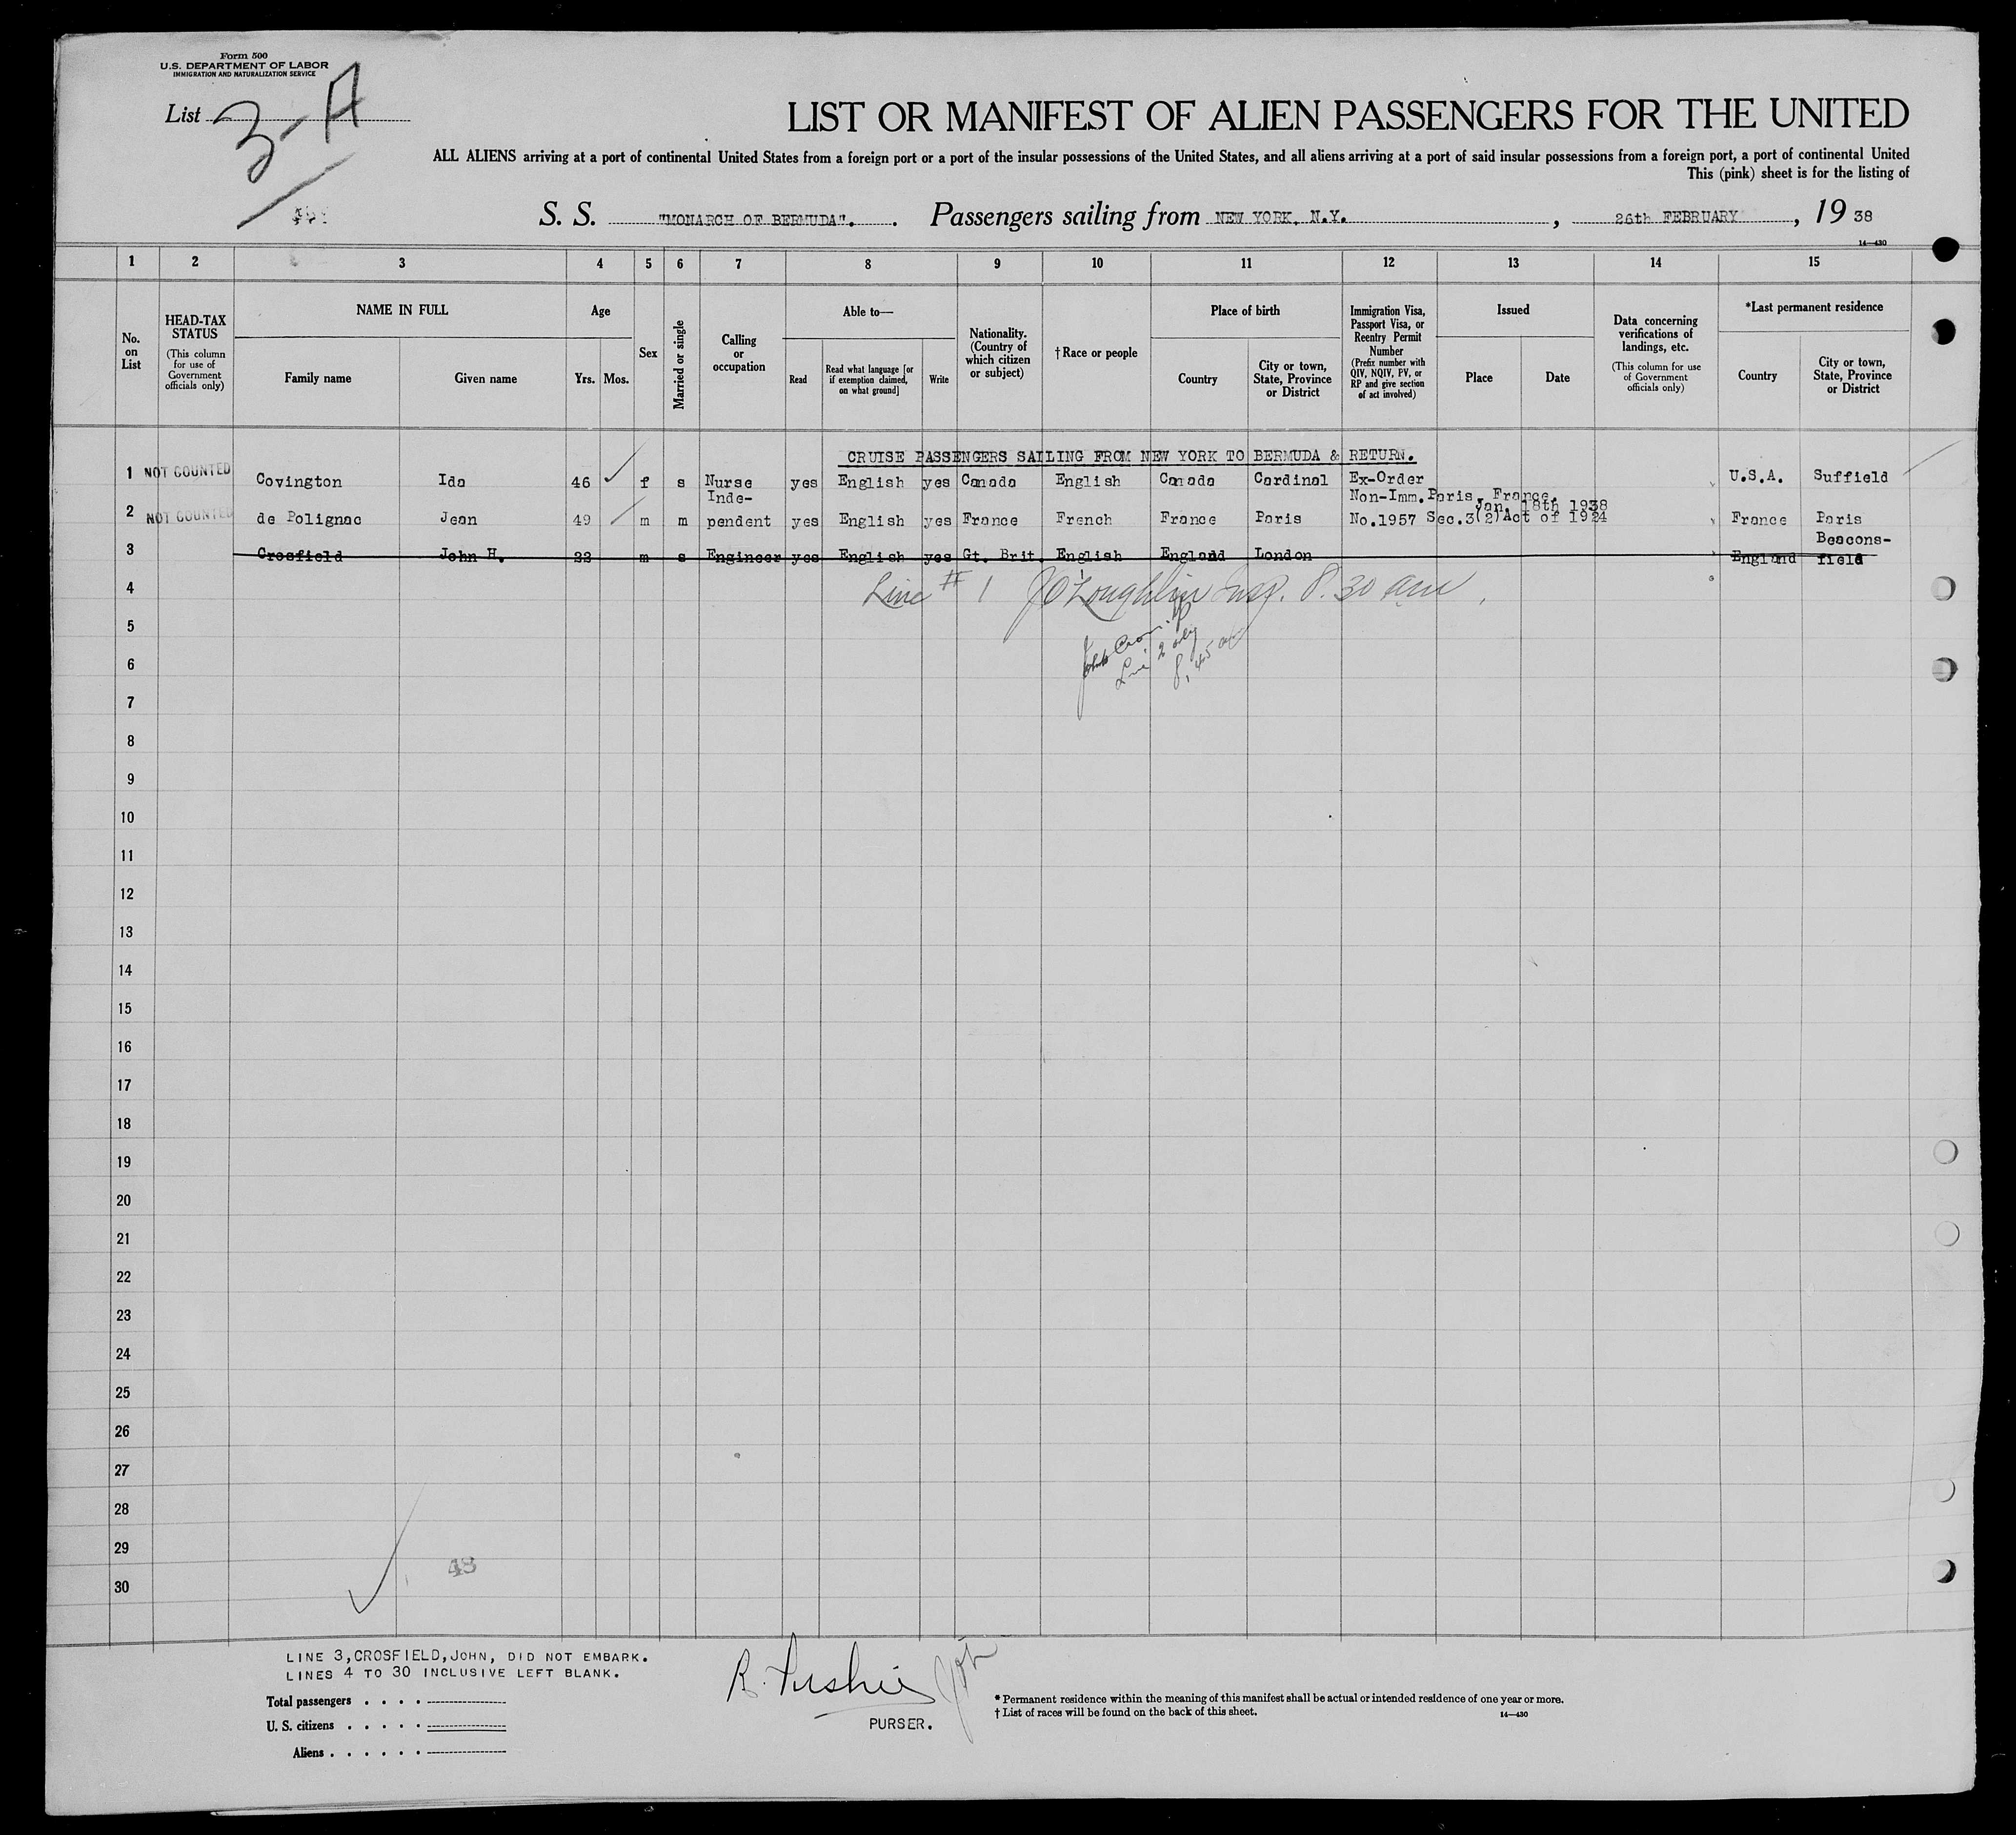 Form 500
U.S. DEPARTMENT OF LABOR
IMMIGRATION AND NATURALIZATION SERVICE
List 3-A
LIST OR MANIFEST OF ALIEN PASSENGERS FOR THE UNITED
ALL ALIENS arriving at a port of continental United States from a foreign port or a port of the insular possessions of the United States, and all aliens arriving at a port of said insular possessions from a foreign port, a port of continental United
This (pink) sheet is for the listing of
S. S. "MONARCH OF BERMUDA". Passengers sailing from NEW YORK, N.Y. , 26th FEBRUARY , 19 38
14—430
1 2 3 4 5 6 7 8 9 10 11 12 13 14 15
No. on List
HEAD-TAX STATUS
(This column for use of Government officials only)
NAME IN FULL
Family name Given name
Age
Yrs. Mos.
Sex
Married or single
Calling or occupation
Able to—
Read
Read what language [or if exemption claimed, on what ground]
Write
Nationality. (Country of which citizen or subject)
†Race or people
Place of birth
Country
City or town, State, Province or District
Immigration Visa, Passport Visa, or Reentry Permit Number
(Prefix number with QIV, NQIV, PV, or RP and give section of act involved)
Issued
Place Date
Data concerning verifications of landings, etc.
(This column for use of Government officials only)
*Last permanent residence
Country
City or town, State, Province or District
CRUISE PASSENGERS SAILING FROM NEW YORK TO BERMUDA & RETURN.
1 NOT COUNTED Covington Ida 46 f s Nurse yes English yes Canada English Canada Cardinal Ex-Order U.S.A. Suffield
Inde- Non-Imm. Paris, France.
Jan. 18th 1938
2 NOT COUNTED de Polignac Jean 49 m m pendent yes English yes France French France Paris No.1957 Sec.3(2)Act of 1924 France Paris
Beacons-
3 Crosfield John H. 22 m s Engineer yes English yes Gt. Brit. English England London England field
4 Line # 1 JO'Loughlin Insp. 8.30 am
5
6 Line 2 only
8.45 am
7
8
9
10
11
12
13
14
15
16
17
18
19
20
21
22
23
24
25
26
27
28
29
48
30
LINE 3,CROSFIELD,JOHN, DID NOT EMBARK.
LINES 4 TO 30 INCLUSIVE LEFT BLANK.
Total passengers . . . .
U. S. citizens . . . . .
Aliens . . . . . .
PURSER.
* Permanent residence within the meaning of this manifest shall be actual or intended residence of one year or more.
† List of races will be found on the back of this sheet.
14—430